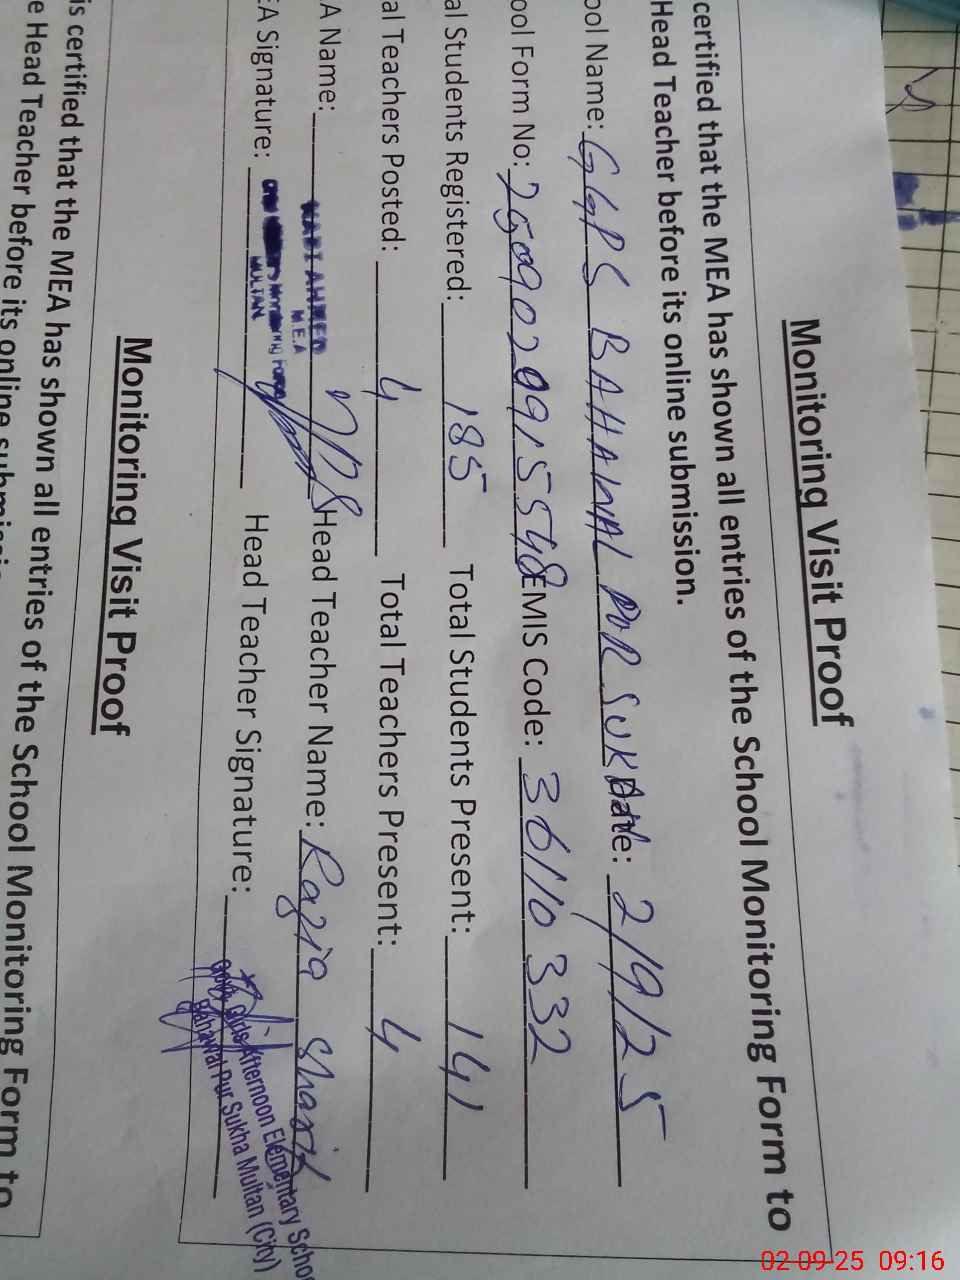 Monitoring Visit Proof
certified that the MEA has shown all entries of the School Monitoring Form to
Head Teacher before its online submission.
ool Name: GGPS BAHAWAL PUR SUK Date: 2/9/25
ool Form No: 25090299155548 EMIS Code: 36110332
al Students Registered: 185 Total Students Present: 141
al Teachers Posted: 4 Total Teachers Present: 4
A Name: AHMED Head Teacher Name: Razia Shasik
M.E.A
EA Signature: Monitoring Force Head Teacher Signature:
MULTAN
Govt. Girls Afternoon Elementary Schoo
Bahawal Pur Sukha Multan (City)
Monitoring Visit Proof
is certified that the MEA has shown all entries of the School Monitoring Form to
e Head Teacher before its online submissio
02-09-25 09:16